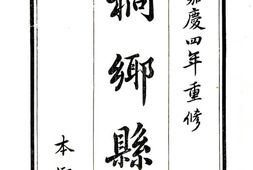 嘉慶四年重修
桐鄉縣
本